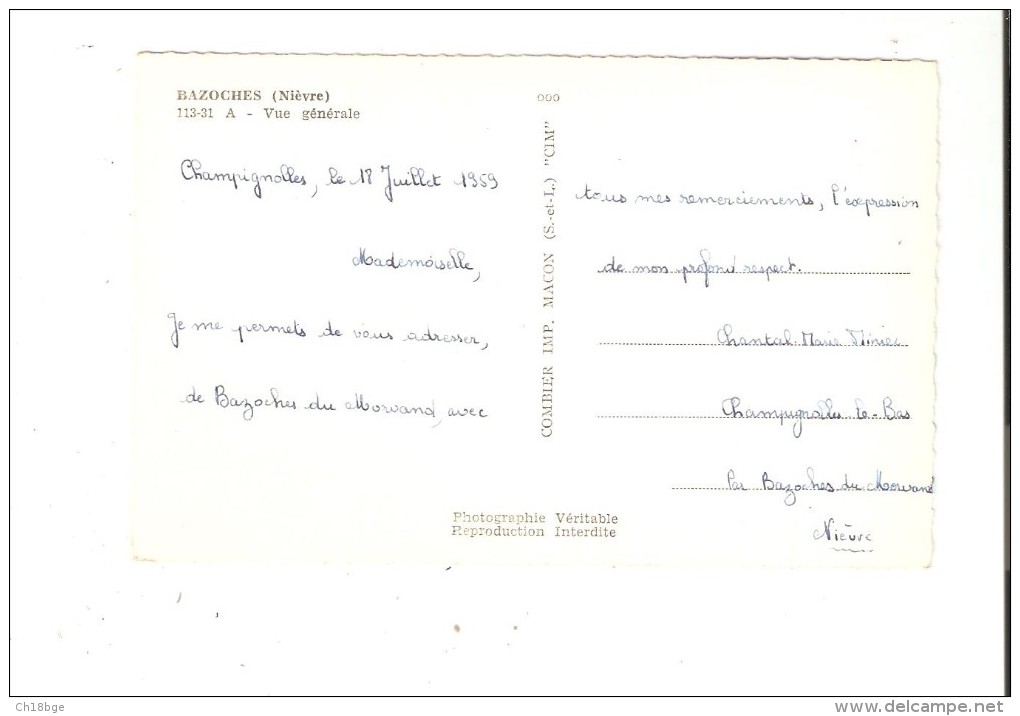 BAZOCHES (Nièvre)
113-31 A - Vue générale
Champignolles, le 18 Juillet 1959
Mademoiselle,
Je me permets de vous adresser,
de Bazoches du Morvand, avec
COMBIER IMP. MACON (S.-et-L.) "CIM"
000
tous mes remerciements, l'expression
de mon profond respect.
Chantal-Marie
Champignolles le-Bas
Par Bazoches du Morvand
Nièvre
Photographie Véritable
Reproduction Interdite
Ch18bge
www.delcampe.net